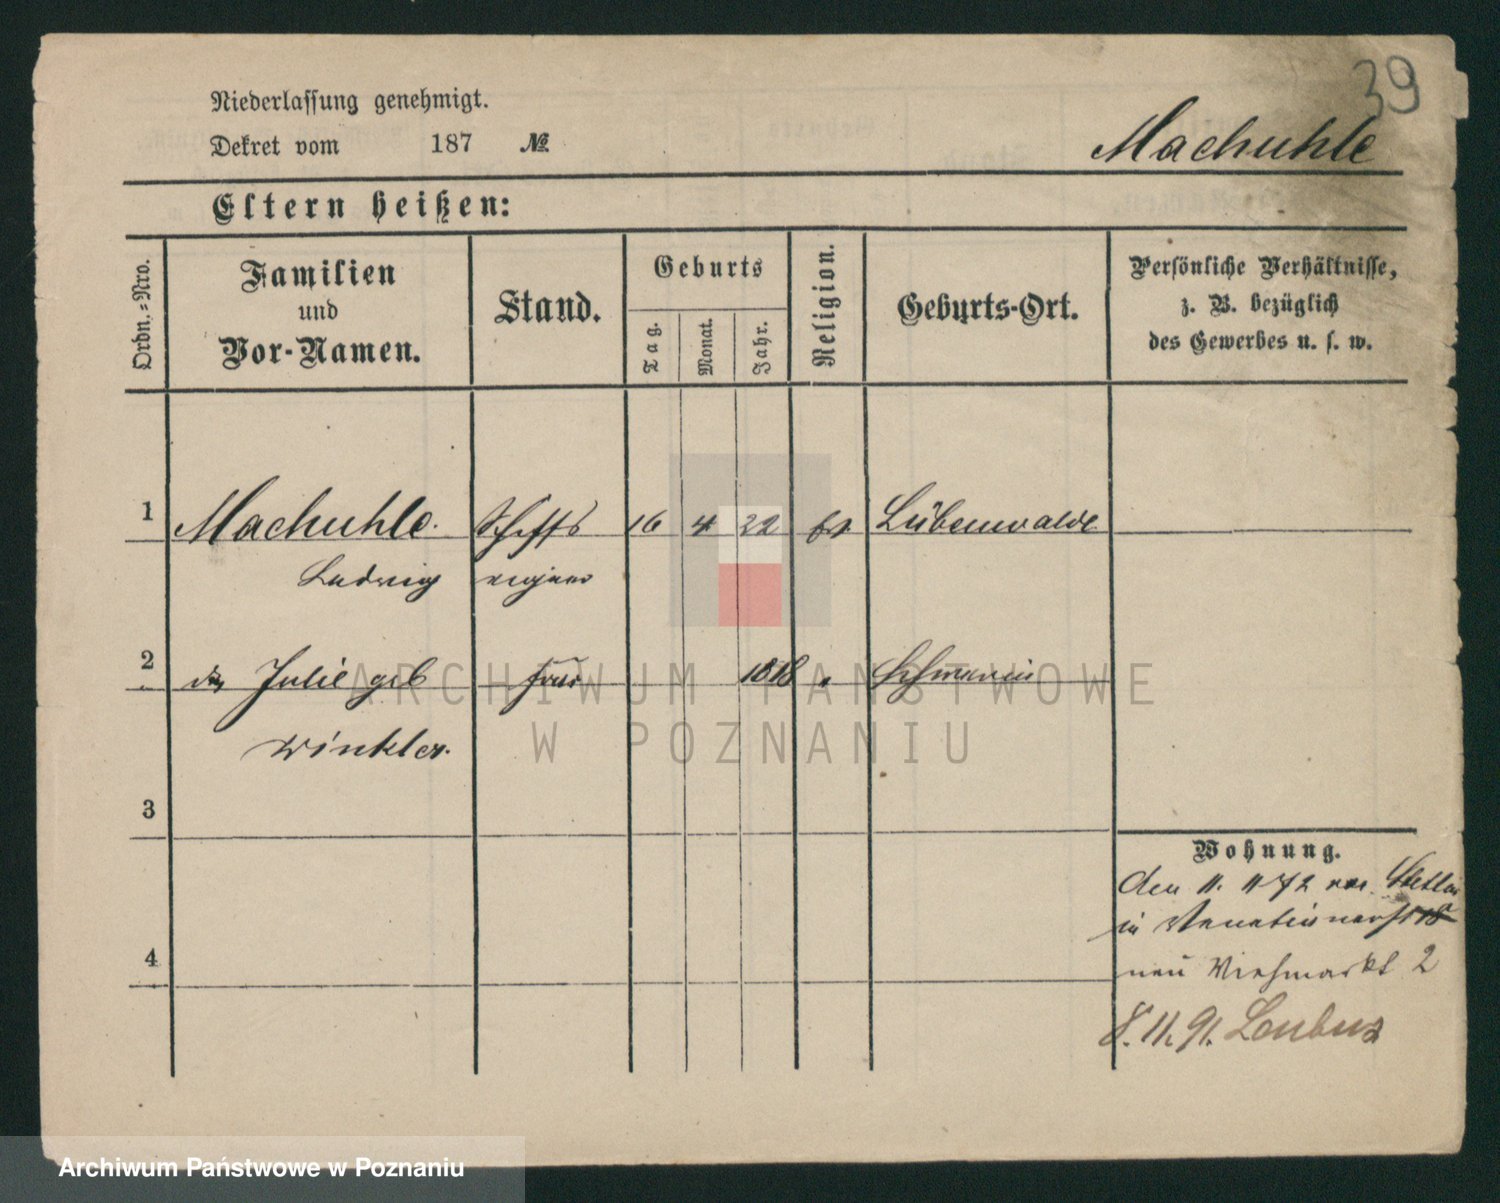 39
Niederlassung genehmigt.
Dekret vom 187 №
Machuhle
Eltern heißen:
Ordn.=Nro.
Familien
und
Vor-Namen.
Stand.
Geburts
Tag.
Monat.
Jahr.
Religion.
Geburts-Ort.
Persönliche Verhältnisse,
z. B. bezüglich
des Gewerbes u. s. w.
1 Machuhle. Schiffs 16 4 22 Lübenwalde
Ludwig eigner
2 Julie geb Frau 1818 " Schwerin
Winkler.
3
Wohnung.
den 11. 11 72 Stettin
in 18
4
neu Viehmarkt 2
8. 11. 91. Leubus
ARCHIWUM PAŃSTWOWE
W POZNANIU
Archiwum Państwowe w Poznaniu